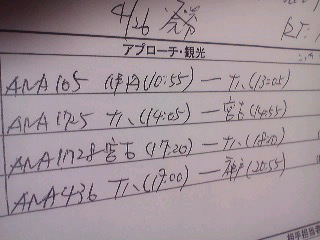 4/26 発
アプローチ・観光
ANA 105 伊丹(10:55) — ナハ(13:05)
ANA 1725 ナハ(14:05) — 宮古(14:55)
ANA 1728 宮古(17:20) — ナハ(18:10)
ANA 436 ナハ(19:00) — 神戸(20:55)
担当者